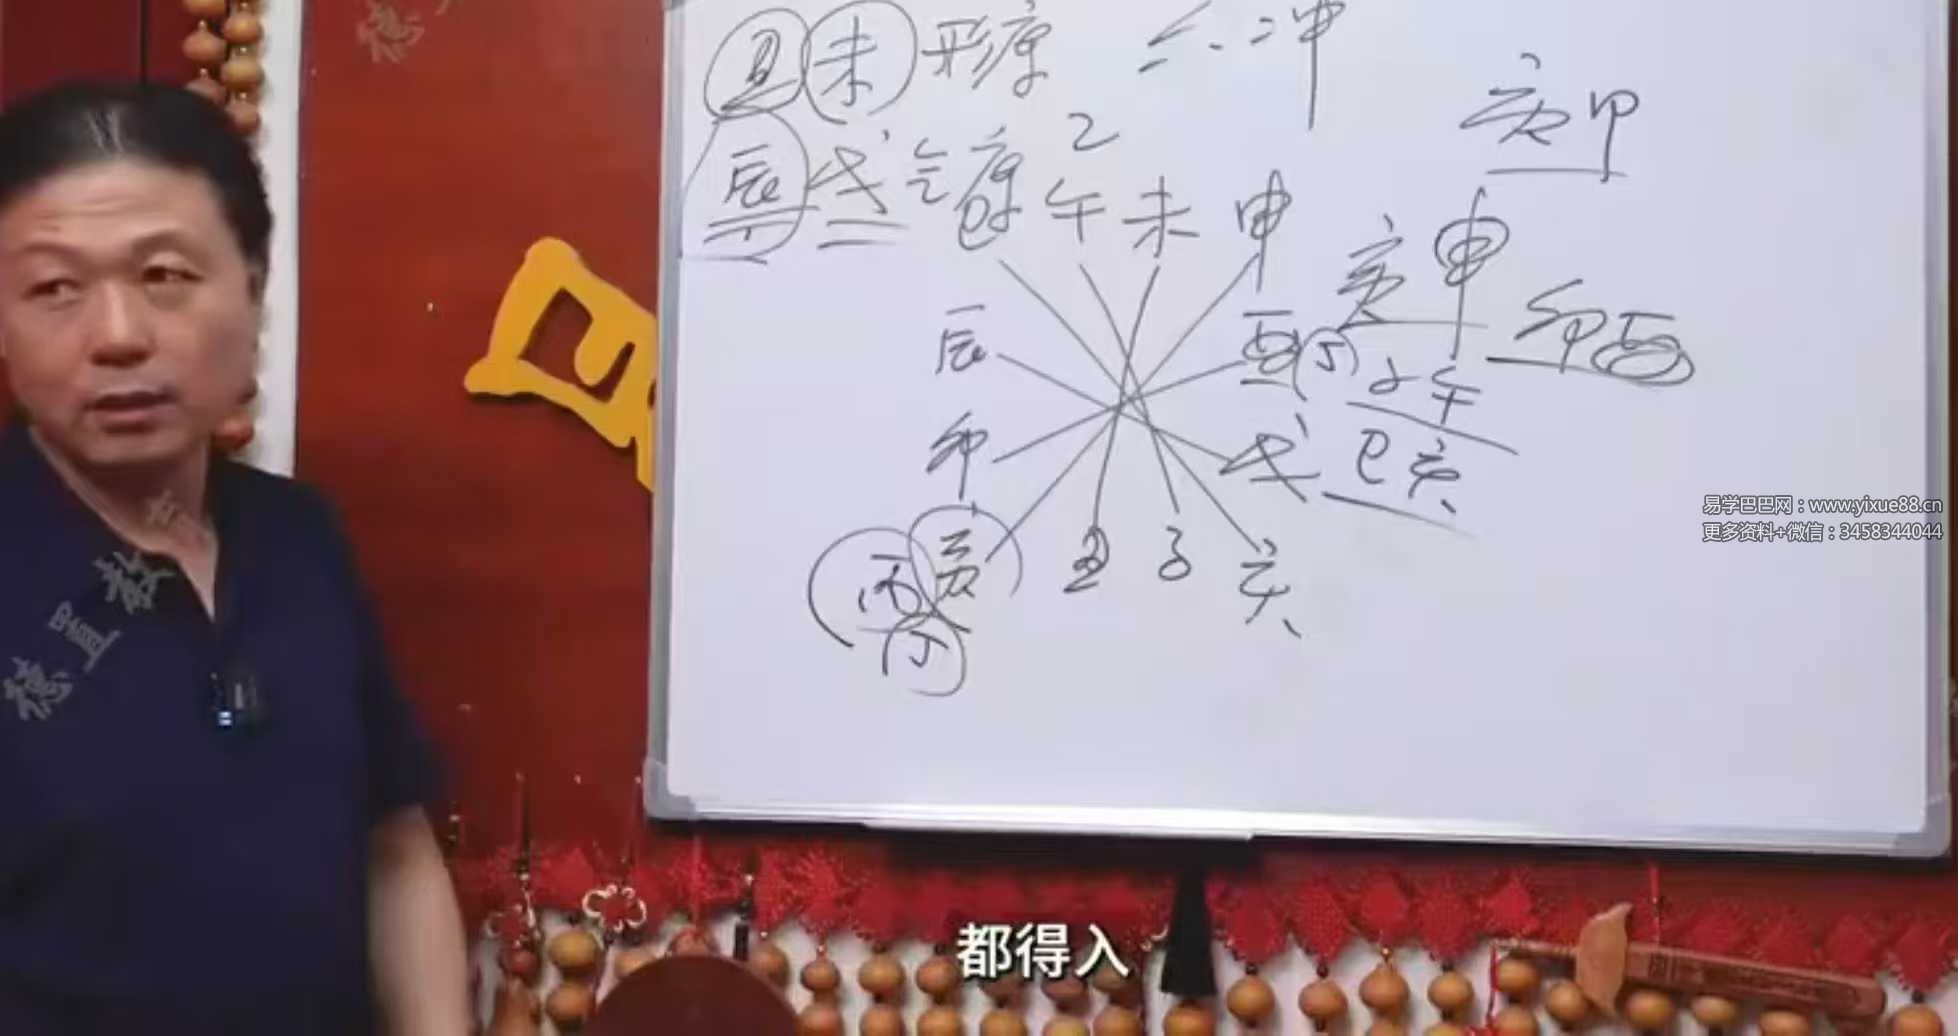 丑 未 形库 二冲
庚甲
辰 戌 气库 乙
巳 午 未 申
庚申
辰 酉
卯酉
子午
卯 戌
巳亥
丙 寅 丑 子 亥
丁
易学巴巴网：www.yixue88.cn
更多资料+微信：3458344044
德皿教
都得入